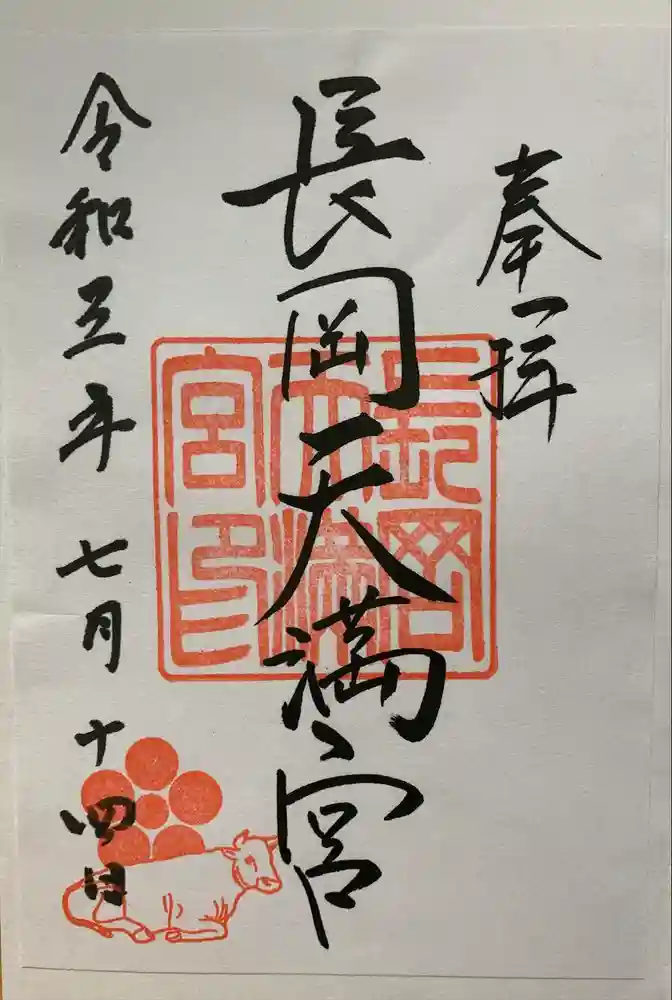 奉拝
長岡天満宮
長岡天満宮印
令和三年 七月 十四日